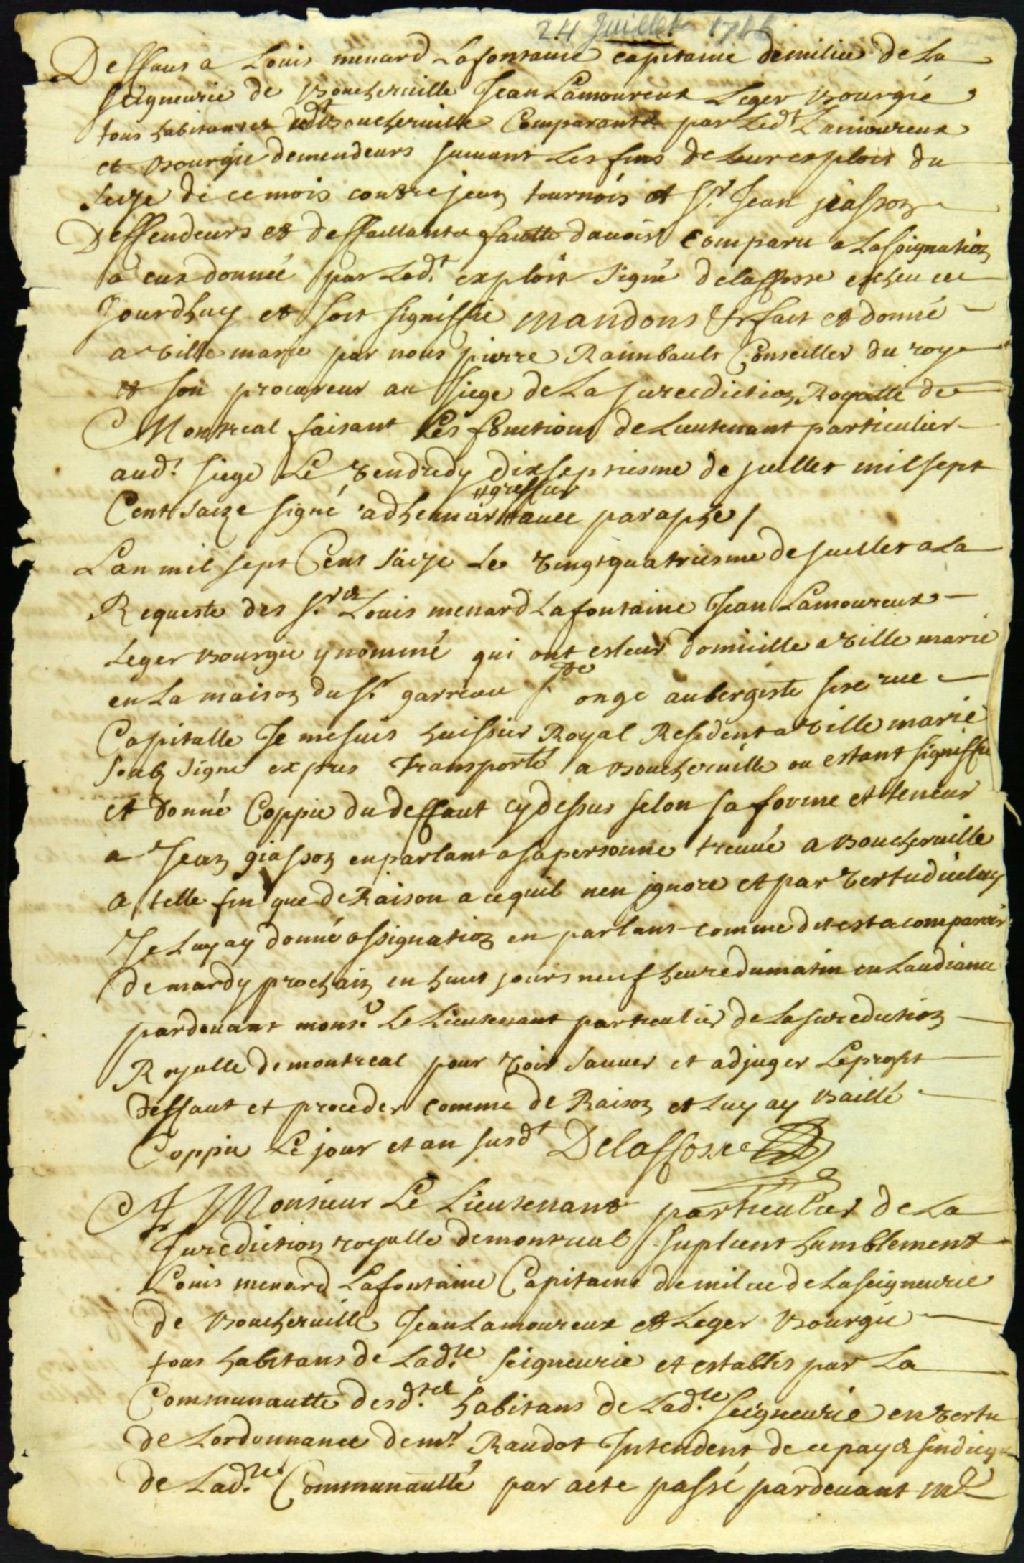 24 Juillet 1716
Deffaus a Louis menard Lafontaine capitaine demilice de La
seigneurie de Boucherville Jean Lamoureux Leger Bourgié
tous habitans Boucherville Comparants par Ledt Lamoureux
et Bourgie demendeurs suivant Les fins de leur exploit du
seize de ce mois contre jean tournois et Sr. Jean jiasson
Deffendeurs et deffaillants faulte davoir comparu a Lasignation
a eux donnée par Led.t exploit signé delafosse echeu ce
Jourdhuy et soit signiffié mandons & fait et donné
a Ville marie par nous pierre Raimbault Conseiller du roy
et son procureur au siege de La jurediction Royalle de
Montreal faisant Les fonctions de Lieutenant particulier
aud.t siege Le Vendredy dixseptiesme de juillet mil sept
Cent saize signé adhemar greffier avec paraphe /
Lan mil sept Cent saize Le Vingtquatriesme de Juillet a La
Requeste des Srs Louis menard Lafontaine Jean Lamoureux
Leger Bourgie y nommé qui ont esleu domicille a Ville marie
en La maison du Sr. garreau St onge aubergiste sise rue
Capitalle Je me suis huissier Royal Resident a Ville marie
soubz signé expres transporté a Boucherville ou estant signiffié
et donné Coppie du deffaut cy dessus selon sa forme et teneur
a Jean giasson en parlant a sa personne treuvé a Boucherville
a telle fin que de Raison a ce quil nen ignore et par Vertu diceluy
Je Luy ay donné assignation en parlant comme dit est a comparoir
de mardy prochain en huit jours neuf heure du matin en Laudiance
pardevant monsr Le Lieutenant particulier de La jurediction
Royalle de montreal pour Voir sauver et adjuger Le profit
deffaut et proceder comme de Raison et Luy ay Baillé
Coppie Le jour et an susdt Delafosse
A Monsieur Le Lieutenant particulier de La
Jurediction royalle demontreal suplient humblement
Louis menard Lafontaine Capitaine de milice de Laseigneurie
de Boucherville Jean Lamoureux et Leger Bourgié
tous habitans de Lad.te seigneurie et establis par La
Communautte desd.ts habitans de Lad.te seigneurie en Vertu
de Lordonnance de mr. Raudot Intendent de ce pays sindicq
de Lad.te Communaulté par acte passé pardevant me